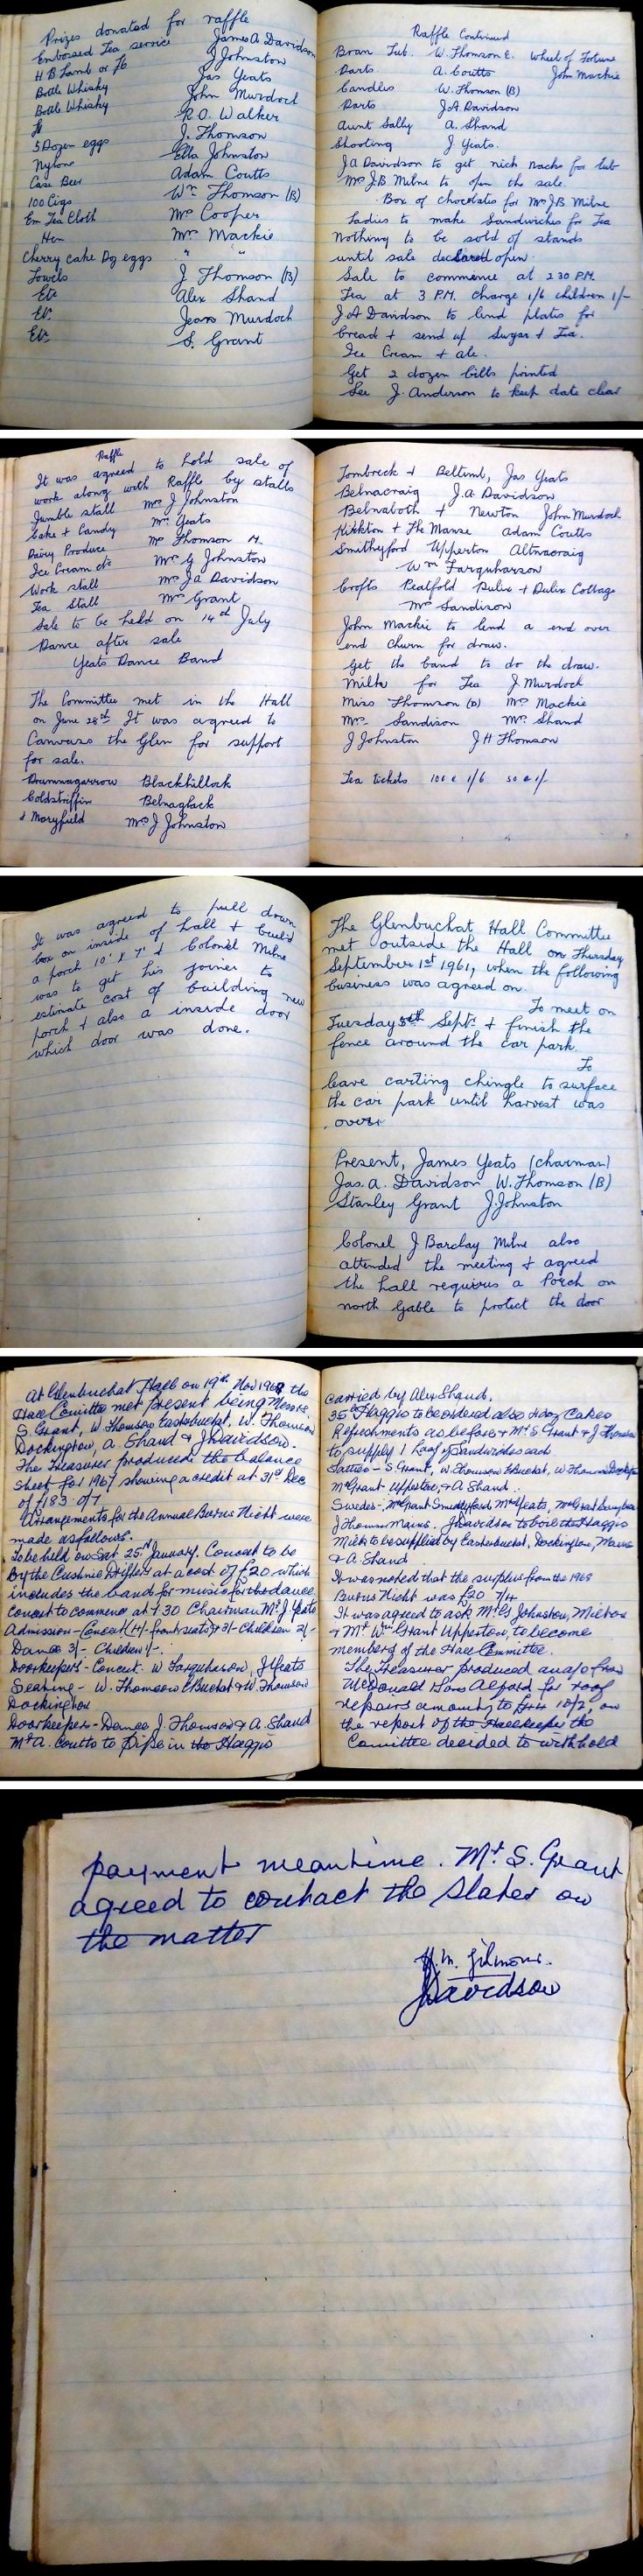 Prizes donated for raffle
Embossed Tea service James A Davidson
H B Lamb or £6 J Johnston
Bottle Whisky Jas Yeats
Bottle Whisky John Murdoch
R.O. Walker
5 Dozen eggs J. Thomson
Nylons Ella Johnston
Case Beer Adam Coutts
100 Cigs Wm Thomson (B)
Em Tea Cloth Mrs Cooper
Hen Mrs Mackie
Cherry cake Dz eggs " "
Towels J Thomson (B)
Etc Alex Shand
Etc Jean Murdoch
Etc S. Grant
Raffle Continued
Bran Tub. W. Thomson E. Wheel of Fortune
Darts A. Coutts John Mackie
Candles W. Thomson (B)
Darts J.A Davidson
Aunt Sally A. Shand
Shooting J Yeats.
J A Davidson to get nick nacks for tub
Mrs J.B. Milne to open the sale.
Box of chocolates for Mrs J B Milne
Ladies to make Sandwiches for Tea
Nothing to be sold of stands
until sale declared open.
Sale to commence at 2 30 P.M.
Tea at 3 P.M. Charge 1/6 children 1/-
J A Davidson to lend plates for
bread + send up Sugar + Tea.
Ice Cream + ale.
Get 2 dozen bills printed
See J. Anderson to keep date clear
Raffle
It was agreed to hold sale of
work along with Raffle by stalls
Jumble stall Mrs J Johnston
Cake + Candy Mrs Yeats
Dairy Produce Mrs Thomson M.
Ice Cream etc Mrs G Johnston
Work stall Mrs J A Davidson
Tea Stall Mrs Grant
Sale to be held on 14th July
Dance after sale
Yeats Dance Band
The Committee met in the Hall
on June 28th It was agreed to
Canvass the Glen for support
for sale.
Drumnagarrow Blackhillock
Coldstriffin Belnaglack
& Maryfield Mrs J Johnston
Tombreck + Beltimb, Jas Yeats
Belnacraig J.A. Davidson
Belnaboth + Newton John Murdoch
Kirkton + The Manse Adam Coutts
Smithyford Upperton Altnacraig
Wm Farquharson
Crofts Peatfold Dulix + Dulix Cottage
Mrs Sandison
John Mackie to lend a end over
end churn for draw.
Get the band to do the draw.
Milk for Tea J Murdoch
Miss Thomson (B) Mrs Mackie
Mrs Sandison Mrs Shand
J Johnston J H Thomson
Tea tickets 100 @ 1/6 50 @ 1/-
It was agreed to pull down
box on inside of hall + build
a porch 10' x 7' + Colonel Milne
was to get his joiner to
estimate cost of building new
porch + also a inside door
which door was done.
The Glenbuchat Hall Committee
met outside the Hall on Thursday
September 1st 1961, when the following
business was agreed on.
To meet on
Tuesday 5th Sept. + finish the
fence around the car park.
To
leave carting chingle to surface
the car park until harvest was
over.
Present, James Yeats (chairman)
Jas. A. Davidson W. Thomson (B)
Stanley Grant J. Johnston
Colonel J Barclay Milne also
attended the meeting + agreed
the hall requires a Porch on
north Gable to protect the door
At Glenbuchat Hall on 19th Nov 1968 the
Hall Comittee met present being Messrs.
S. Grant, W. Thomson Easterbuchat, W. Thomson
Dockington, A. Shand & J Davidson.
The Treasurer produced the balance
Sheet for 1967 showing a credit at 31st Dec
of £183.0/7
Arrangements for the Annual Burns Night were
made as follows.
To be held on Sat. 25th January. Concert to be
by the Cushnie Drifters at a cost of £20 which
includes the band for music for the dance
Concert to commence at 7 30 Chairman Mr J Yeats
Admission - Concert (4/- front seats) & 3/- Children 2/-
Dance 3/- Children 1/-.
Doorkeepers - Concert. W Farquharson, J Yeats
Seating - W. Thomson E Buchat & W. Thomson
Dockington
Doorkeepers - Dance J. Thomson & A. Shand
Mr A. Coutts to Pipe in the Haggis
carried by Alex Shand.
35 lb Haggis to be ordered also 4 doz Cakes
Refreshments as before & Mrs S Grant & J Thomson
to supply 1 Loaf of Sandwiches each
Tatties - S. Grant, W Thomson E Buchat, W Thomson Dockington
Mr Grant Upperton, & A Shand.
Swedes -, Mr Grant Smiddyford, Mrs Yeats, Mr Grant
J Thomson Mains. J Davidson to boil the Haggis
Milk to be supplied by Easterbuchat, Dockington, Mains
& A. Shand
It was noted that the surplus from the 1968
Burns Night was £20 7/4
It was agreed to ask Mr G Johnston, Milton
& Mr Wm Grant Upperton, to become
members of the Hall Committee.
The Treasurer produced an a/c from
McDonald Alford for roof
repairs amount to £44 10/2, on
the report of the Hallkeeper the
Comittee decided to withhold
payment meantime. Mr S. Grant
agreed to contact the slater on
the matter
H. M. Gilmour.
J Davidson